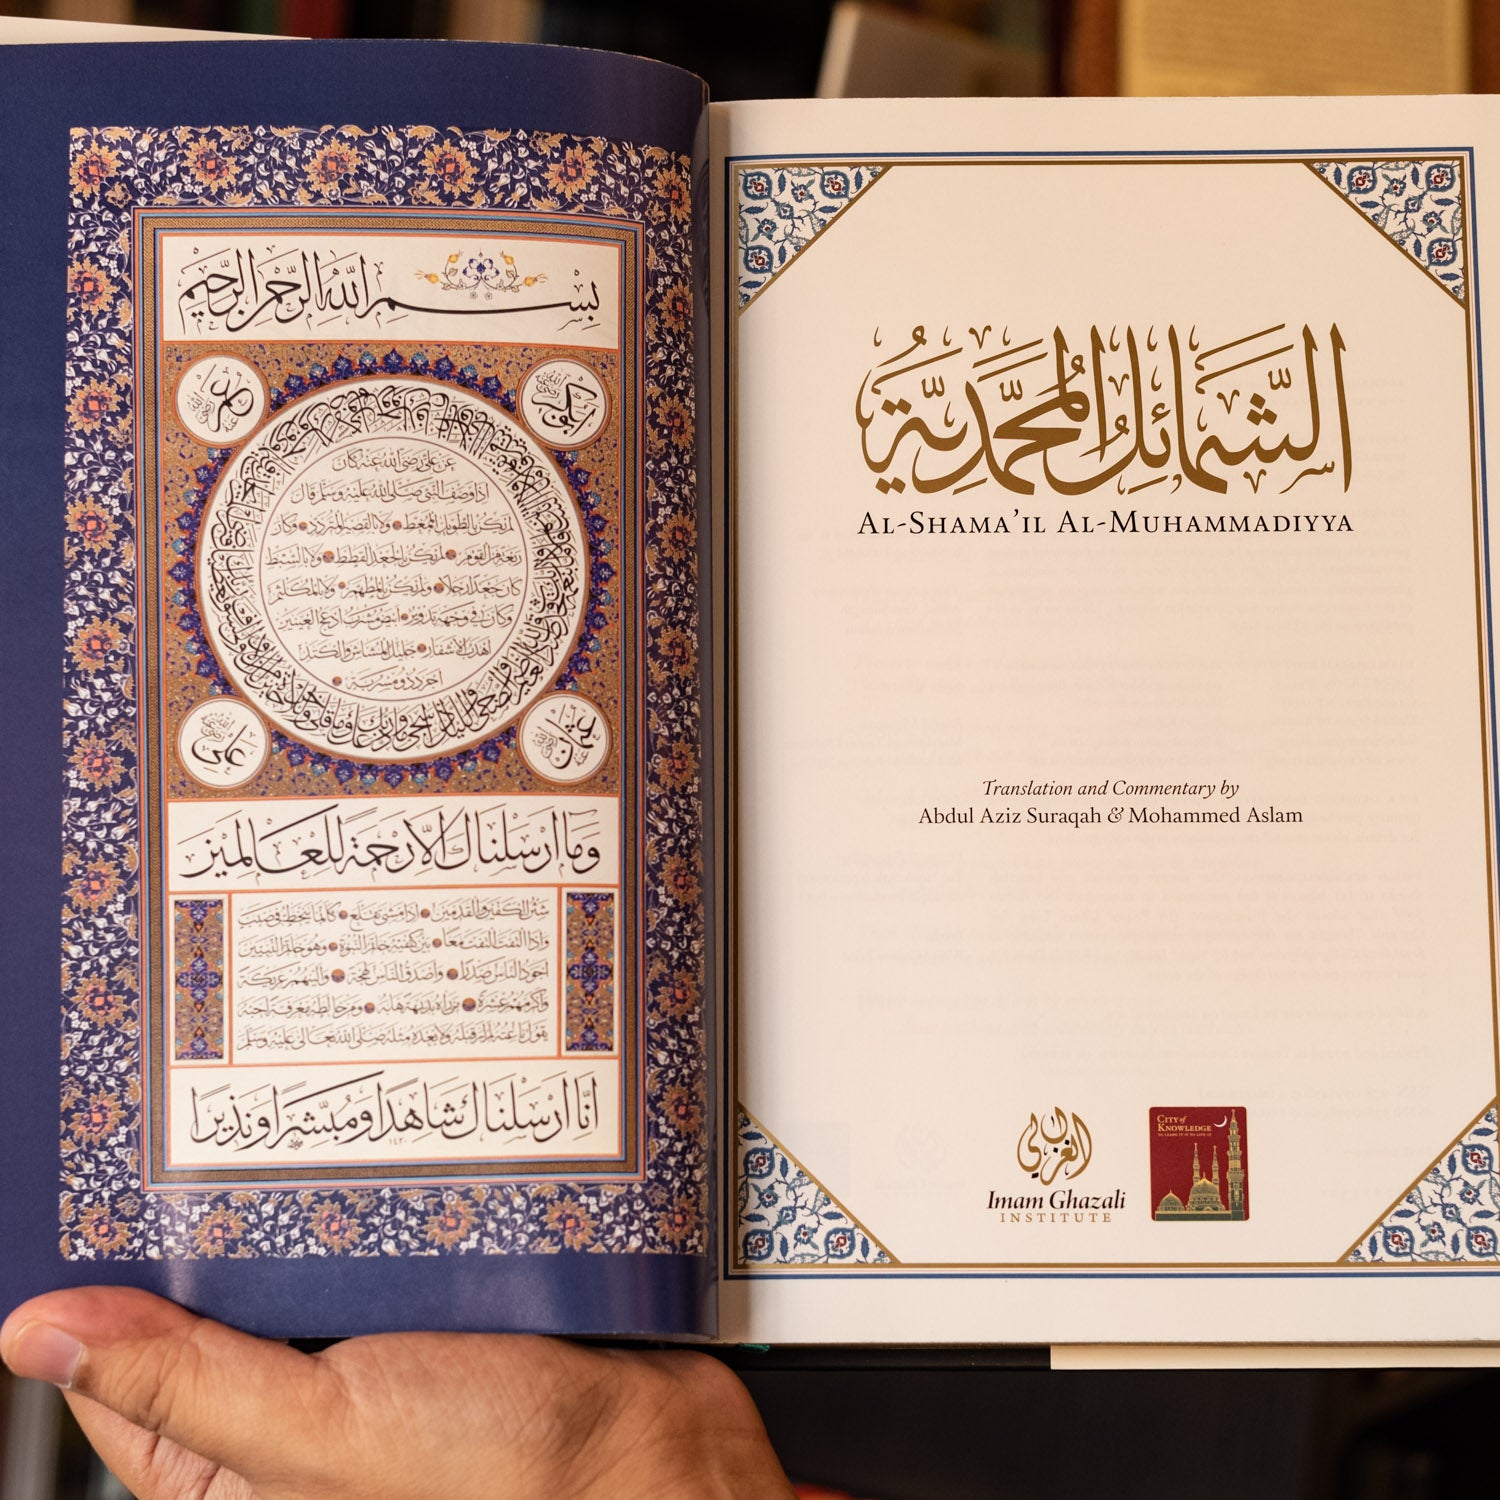 بِسْمِ اللهِ الرَّحْمنِ الرَّحِيمِ
عمر رضي الله عنه
ابو بكر رضي الله عنه
عن علي رضي الله عنه كان
اذا وصف النبي صلى الله عليه وسلم قال
لم يكن بالطويل الممغط ولا بالقصير المتردد وكان
ربعة من القوم لم يكن بالجعد القطط ولا بالسبط
كان جعدا رجلا ولم يكن بالمطهم ولا بالمكلثم
وكان في وجهه تدوير ابيض مشرب ادعج العينين
اهدب الاشفار جليل المشاش والكتد
اجرد ذو مسربة
علي رضي الله عنه
عثمان رضي الله عنه
وَمَا اَرْسَلْنَاكَ اِلَّا رَحْمَةً لِلْعَالَمِينَ
شثن الكفين والقدمين اذا مشى تقلع كانما ينحط في صبب
واذا التفت التفت معا بين كتفيه خاتم النبوة وهو خاتم النبيين
اجود الناس صدرا واصدق الناس لهجة والينهم عريكة
واكرمهم عشرة من رآه بديهة هابه ومن خالطه معرفة احبه
يقول ناعته لم ار قبله ولا بعده مثله صلى الله تعالى عليه وسلم
اِنَّا اَرْسَلْنَاكَ شَاهِدًا وَمُبَشِّرًا وَنَذِيرًا
١٤٢٠
الشَّمَائِلُ المُحَمَّدِيَّةُ
AL-SHAMA’IL AL-MUHAMMADIYYA
Translation and Commentary by
Abdul Aziz Suraqah & Mohammed Aslam
الغزالي
Imam Ghazali
INSTITUTE
CITY of
KNOWLEDGE
TO LEARN IT IS TO LIVE IT